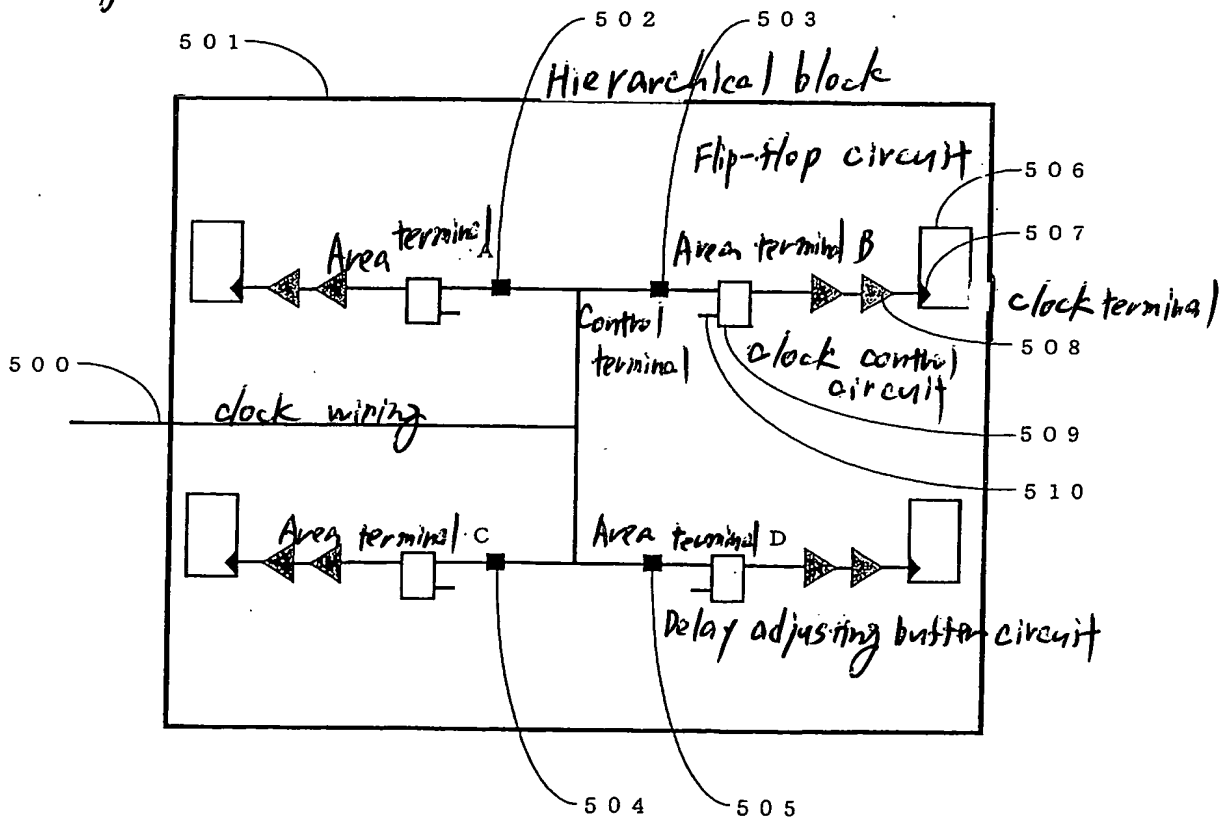 502
503
501
Hierarchical block
Flip-flop circuit
506
Area terminal A
Area terminal B
507
clock terminal
Control terminal
508
clock control circuit
500
clock wiring
509
510
Area terminal C
Area terminal D
Delay adjusting buffer circuit
504
505